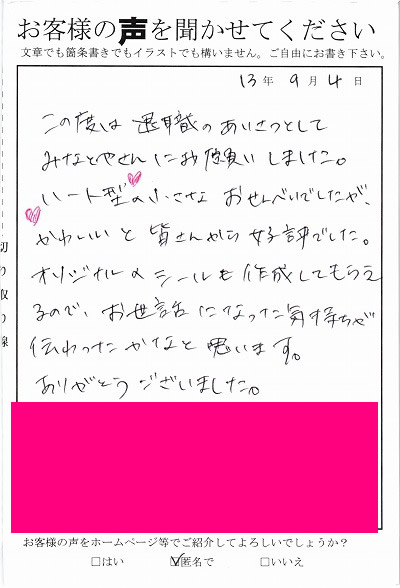 お客様の声を聞かせてください
文章でも箇条書きでもイラストでも構いません。ご自由にお書き下さい。
13年 9月 4日
この度は 退職のあいさつとして
みなとやさんにお願い しました。
ハート型の小さな おせんべいでしたが、
かわいいと 皆さんから 好評でした。
オリジナルのシールも 作成してもらえ
るので、お世話になった気持ちが
伝わったかなと 思います。
ありがとうございました。
切り取り線
お客様の声をホームページ等でご紹介してよろしいでしょうか?
□はい ☑匿名で □いいえ